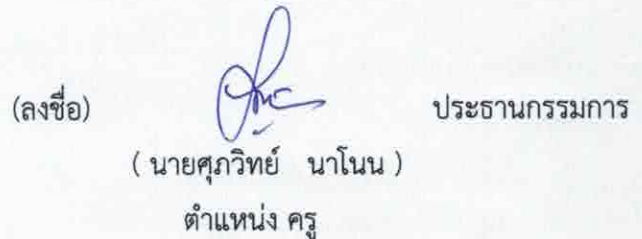 (ลงชื่อ) ประธานกรรมการ
( นายศุภวิทย์ นาโนน )
ตำแหน่ง ครู